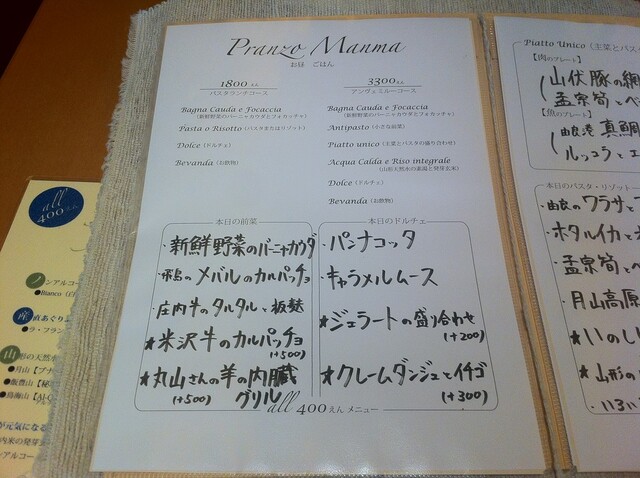 Pranzo Manma
お昼 ごはん
1800えん
パスタランチコース
Bagna Cauda e Focaccia
(新鮮野菜のバーニャカウダとフォカッチャ)
Pasta o Risotto (パスタまたはリゾット)
Dolce (ドルチェ)
Bevanda (お飲物)
3300えん
アンヴェミルーコース
Bagna Cauda e Focaccia
(新鮮野菜のバーニャカウダとフォカッチャ)
Antipasto (小さな前菜)
Piatto unico (主菜とパスタの盛り合わせ)
Acqua Calda e Riso integrale
(山形天然水の素湯と発芽玄米)
Dolce (ドルチェ)
Bevanda (お飲物)
本日の前菜
・新鮮野菜のバーニャカウダ
のメバルのカルパッチョ
・庄内牛のタルタルと板麩
★米沢牛のカルパッチョ
(+500)
★丸山さんの羊の内臓
(+500) グリル
本日のドルチェ
・パンナコッタ
・キャラメルムース
★ジェラートの盛り合わせ
(+200)
★クレームダンジュとイチゴ
(+300)
all 400えん メニュー
Piatto Unico (主菜とパスタ
【肉のプレート】
山伏豚の網
孟宗筍とペ
【魚のプレート】
由良港 真鯛
ルッコラとエ
本日のパスタ・リゾット
・由良のワラサと
・ホタルイカと
・孟宗筍と
・月山高原
★いのし
★山形の
・いろい
all
400えん
ノンアルコー
●Bianco (白
産直あぐり
●ラ・フラン
山形の天然水
●月山【ブナ
●飯豊山【秘
●鳥海山【
が元気になる
内米の発芽玄